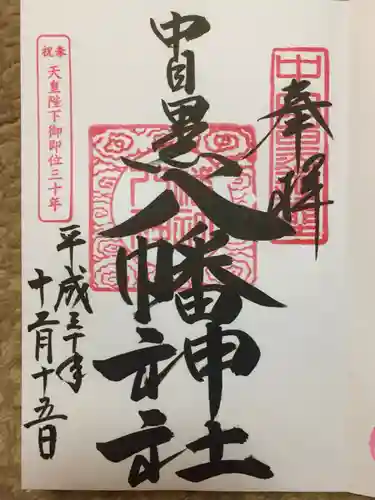 奉拝
中目黒
八幡神社
奉祝 天皇陛下御即位三十年
平成三十年
十二月十五日